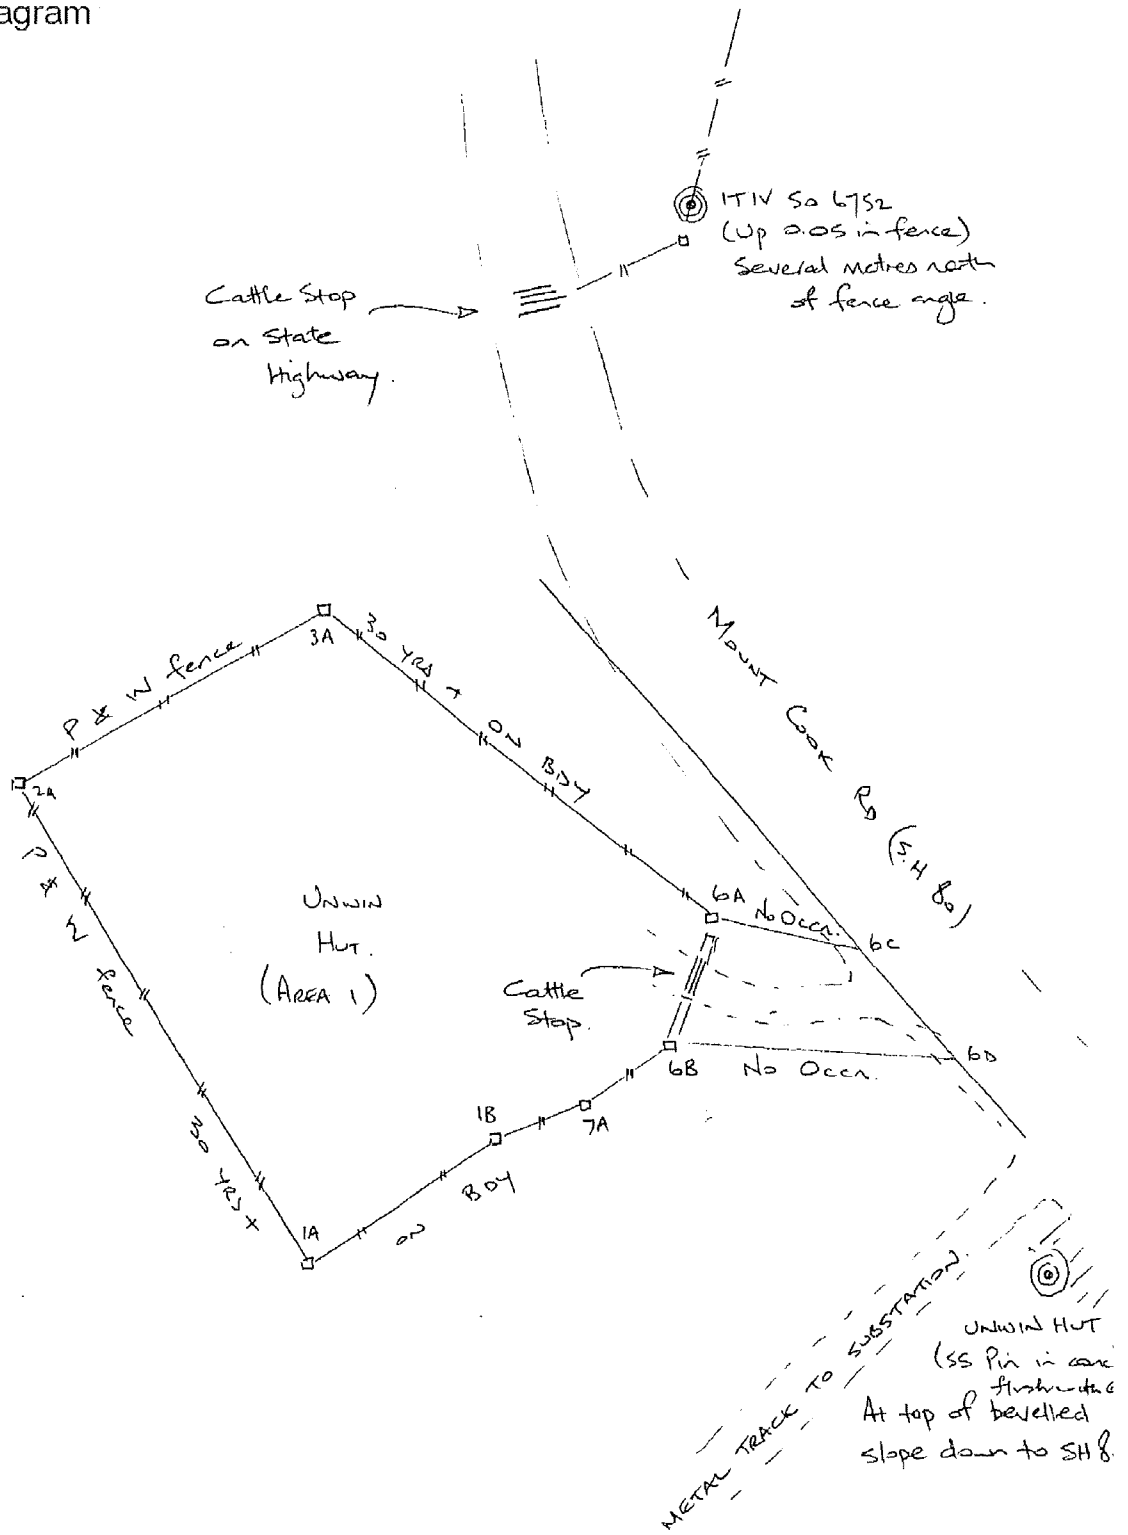 agram
ITIV SO 6752
(Up 0.05 in fence)
Several metres north
of fence angle.
Cattle Stop
on State
Highway.
MOUNT COOK RD (S.H 80)
3A
P & W fence
30 YRS + ON BDY
2A
P & W fence 30 YRS +
UNWIN
HUT.
(AREA 1)
6A
No Occn.
6C
Cattle
Stop.
6B
No Occn.
6D
1B
7A
1A
ON BDY
METAL TRACK TO SUBSTATION.
UNWIN HUT
(SS Pin in conc
flush with c
At top of bevelled
slope down to SH 8.